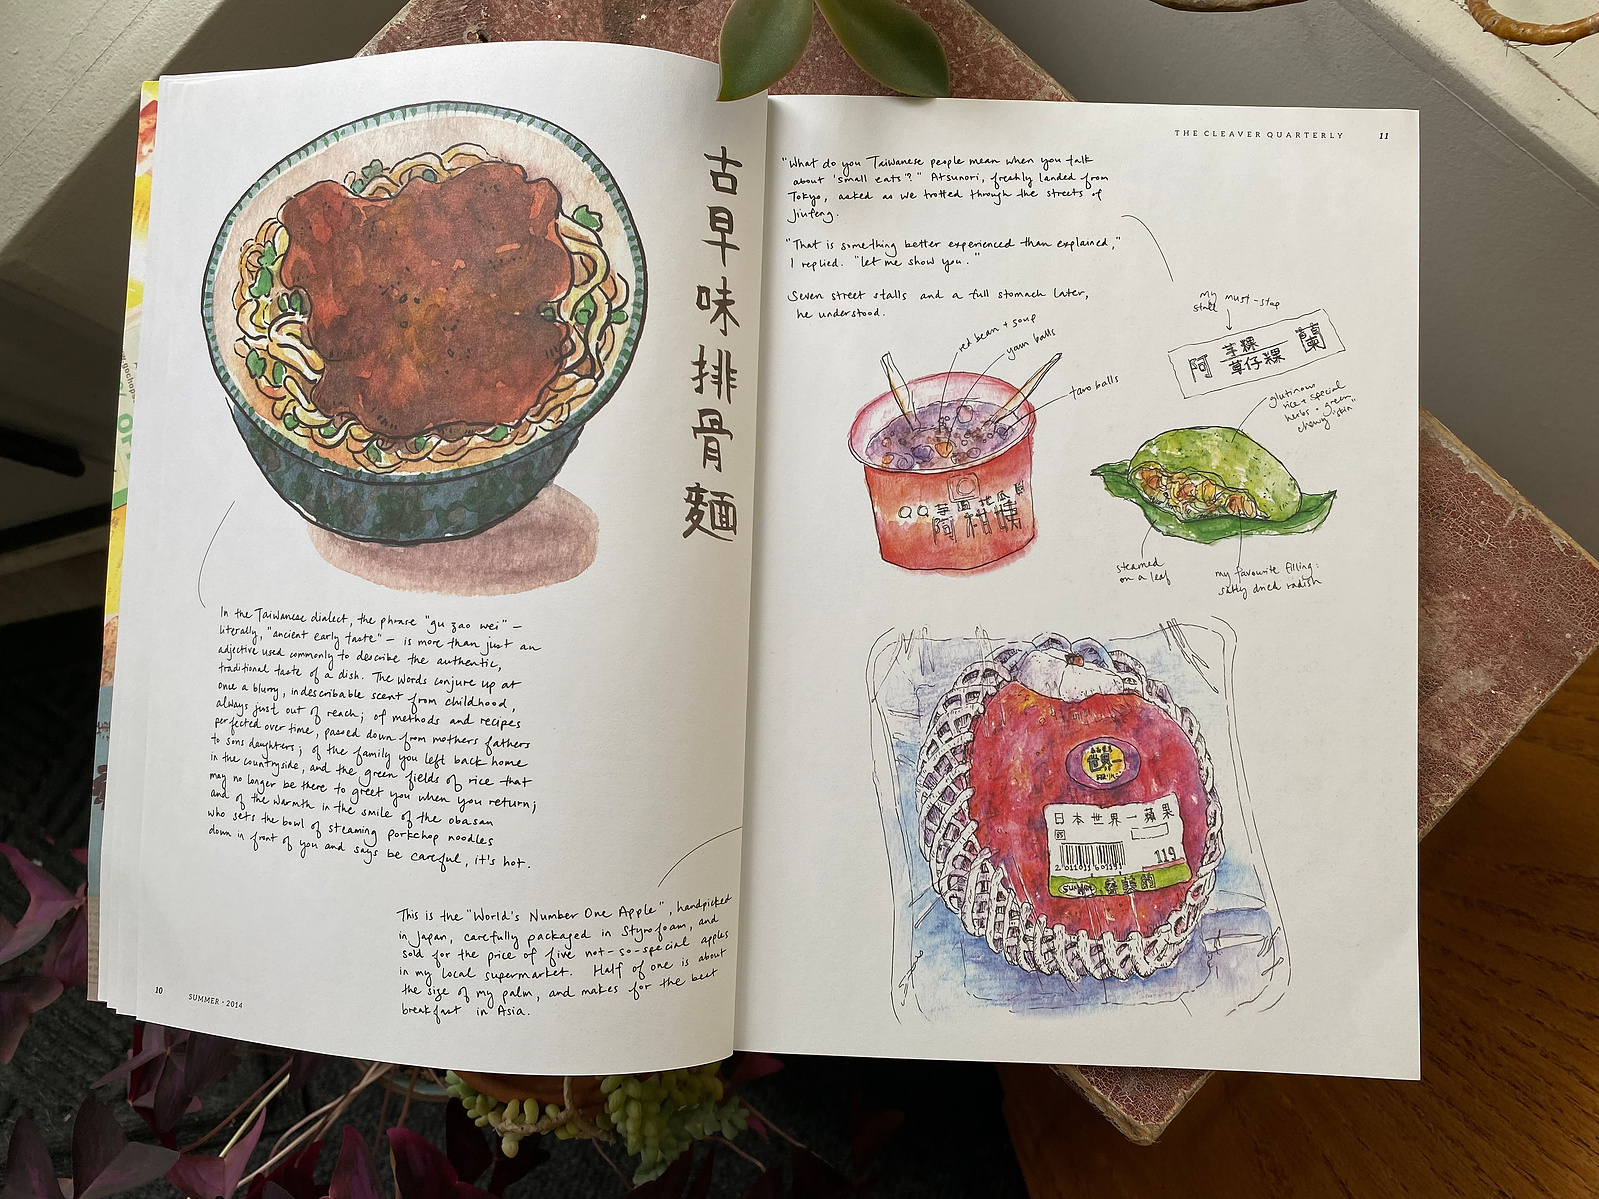 古早味排骨麵
In the Taiwanese dialect, the phrase "gu zao wei" –
literally, "ancient early taste" – is more than just an
adjective used commonly to describe the authentic,
traditional taste of a dish. The words conjure up at
once a blurry, indescribable scent from childhood,
always just out of reach; of methods and recipes
perfected over time, passed down from mothers fathers
to sons daughters; of the family you left back home
in the countryside, and the green fields of rice that
may no longer be there to greet you when you return;
and of the warmth in the smile of the obasan
who sets the bowl of steaming porkchop noodles
down in front of you and says be careful, it's hot.
This is the "World's Number One Apple", handpicked
in Japan, carefully packaged in Styrofoam, and
sold for the price of five not-so-special apples
in my local supermarket. Half of one is about
the size of my palm, and makes for the best
breakfast in Asia.
10
SUMMER · 2014
THE CLEAVER QUARTERLY
11
"What do you Taiwanese people mean when you talk
about 'small eats'?" Atsunori, freshly landed from
Tokyo, asked as we trotted through the streets of
Jiufeng.
"That is something better experienced than explained,"
I replied. "let me show you."
Seven street stalls and a full stomach later,
he understood.
red bean + soup
yam balls
taro balls
QQ芋圓地瓜圓
阿柑姨
my must-stop
stall
阿 芋粿 蘭
草仔粿
glutinous
rice + special
herbs = green
chewy "skin"
steamed
on a leaf
my favourite filling:
salty dried radish
世界一
日本世界一蘋果
119